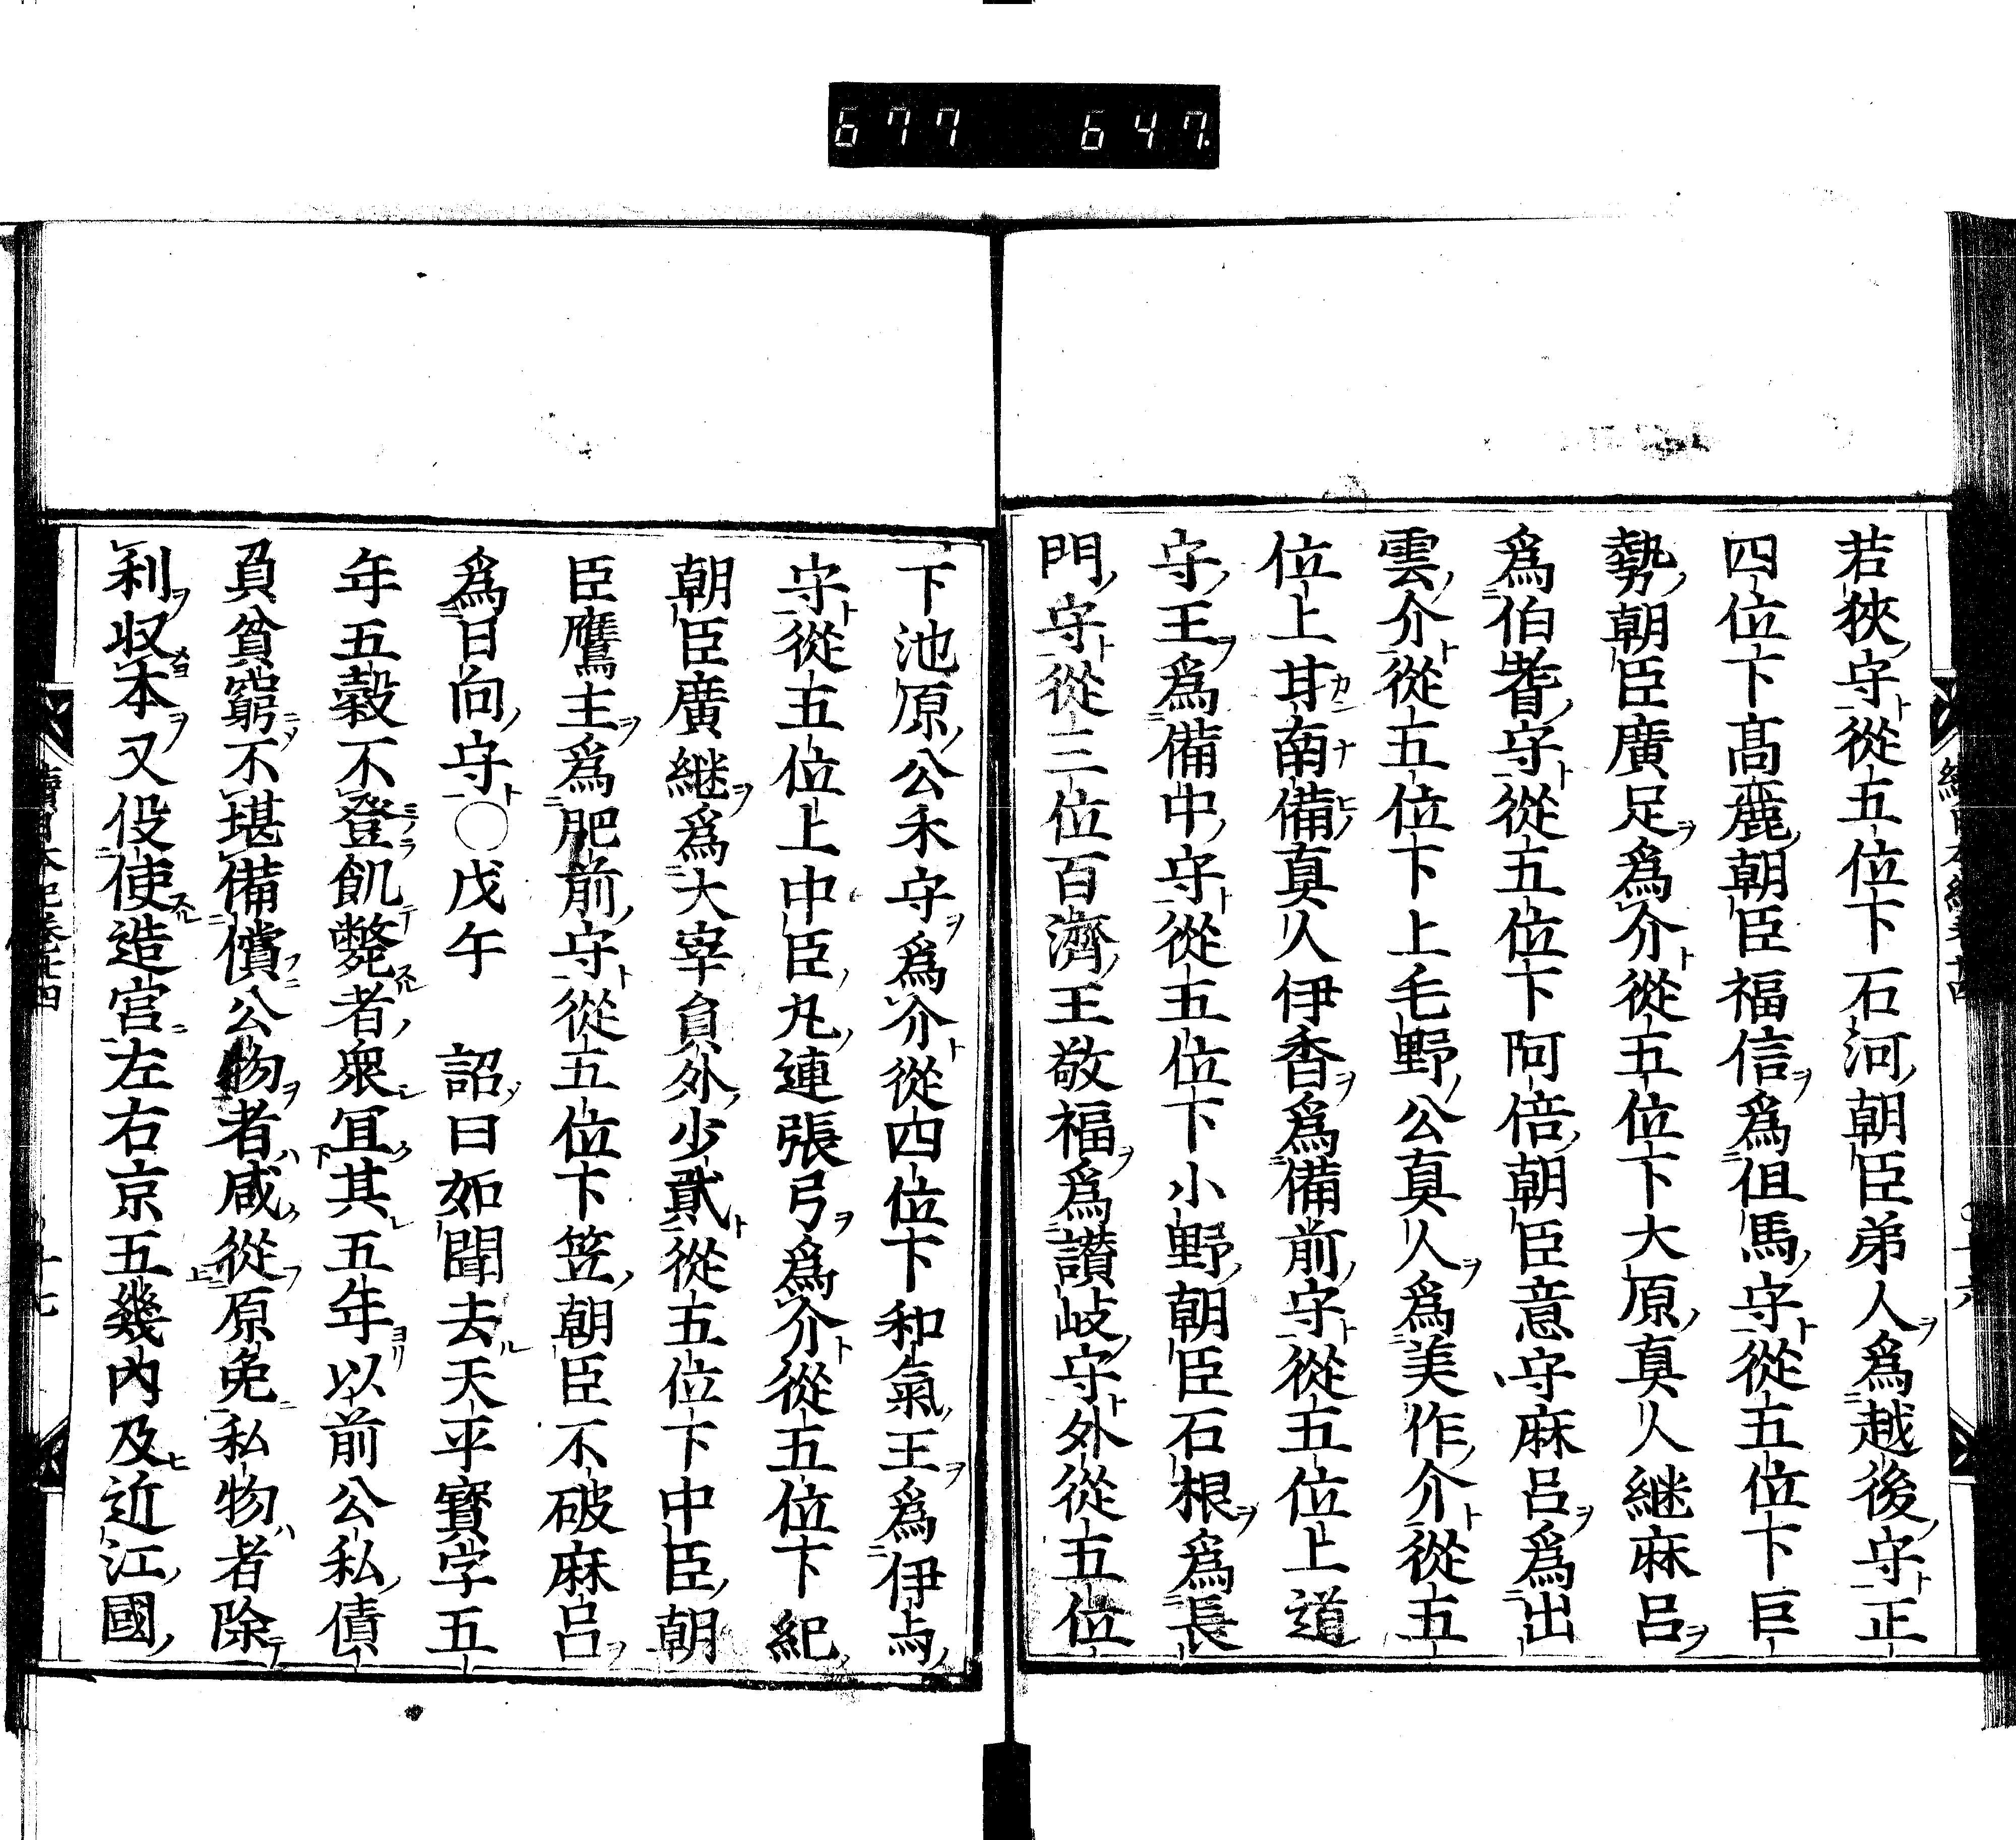 677 647.
若狹守從五位下石河朝臣弟人爲越後守正
四位下髙麗朝臣福信爲但馬守從五位下巨
勢朝臣廣足爲介從五位下大原真人継麻呂
爲伯耆守從五位下阿倍朝臣意宇麻呂爲出
雲介從五位下上毛野公真人爲美作介從五
位上甘南備真人伊香爲備前守從五位上道
守王爲備中守從五位下小野朝臣石根爲長
門守從三位百濟王敬福爲讃岐守外從五位
下池原公禾守爲介從四位下和氣王爲伊与
守從五位上中臣丸連張弓爲介從五位下紀
朝臣廣継爲大宰員外少貳從五位下中臣朝
臣鷹主爲肥前守從五位下笠朝臣不破麻呂
爲日向守○戊午 詔曰如聞去天平寳字五
年五穀不登飢斃者衆冝其五年以前公私債
負貧窮不堪備償公物者咸從原免私物者除
利収本又役使造宫左右京五幾内及近江國